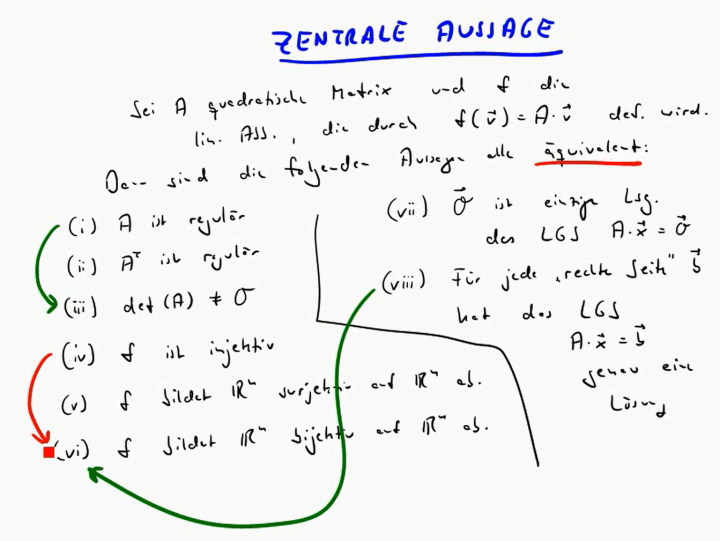 ZENTRALE AUSSAGE
Sei A quadratische Matrix und f die
lin. Abb., die durch f(v⃗) = A·v⃗ def. wird.
Dann sind die folgenden Aussagen alle äquivalent:
(i) A ist regulär
(ii) Aᵀ ist regulär
(iii) det(A) ≠ 0
(iv) f ist injektiv
(v) f bildet ℝⁿ surjektiv auf ℝⁿ ab.
(vi) f bildet ℝⁿ bijektiv auf ℝⁿ ab.
(vii) 0⃗ ist einzige Lsg.
des LGS A·x⃗ = 0⃗
(viii) Für jede „rechte Seite" b⃗
hat das LGS
A·x⃗ = b⃗
genau eine
Lösung